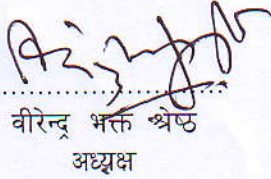 वीरेन्द्र भक्त श्रेष्ठ
अध्यक्ष